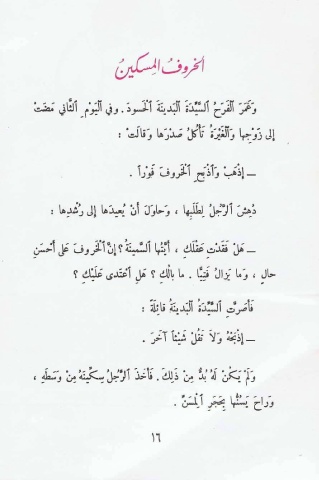 الخروفُ المِسكينُ
وَغَمَرَ ٱلفَرَحُ ٱلسَّيِّدَةَ ٱلبَدينَةَ ٱلحَسودَ . وفي ٱليَومِ ٱلثَّاني مَضَتْ
إلى زَوجِها وَٱلغَيْرَةُ تَأكُلُ صَدْرَها وَقالَتْ :
ــ إذْهَبْ وَٱذْبَحِ ٱلخَروفَ فَوْرًا .
دُهِشَ ٱلرَّجُلُ لِطَلَبِها ، وَحاوَلَ أنْ يُعيدَها إلى رُشْدِها :
ــ هَلْ فَقَدْتِ عَقْلَكِ ، أَيَّتُها ٱلسَّمينَةُ ؟ إنَّ ٱلخَروفَ عَلى أحْسَنِ
حالٍ ، وَما يَزالُ فَتِيًّا . ما بالُكِ ؟ هَلِ ٱعْتَدى عَلَيْكِ ؟
فَأصَرَّتِ ٱلسَّيِّدَةُ ٱلبَدينَةُ قائِلَةً :
ــ إذْبَحْهُ وَلَا تَقُلْ شَيْئًا آخَرَ .
وَلَمْ يَكُنْ لَهُ بُدٌّ مِنْ ذَلِكَ . فَأخَذَ ٱلرَّجُلُ سِكِّينَهُ مِنْ وَسَطِهِ ،
وَراحَ يَسُنُّها بِحَجَرِ ٱلمِسَنِّ .
١٦